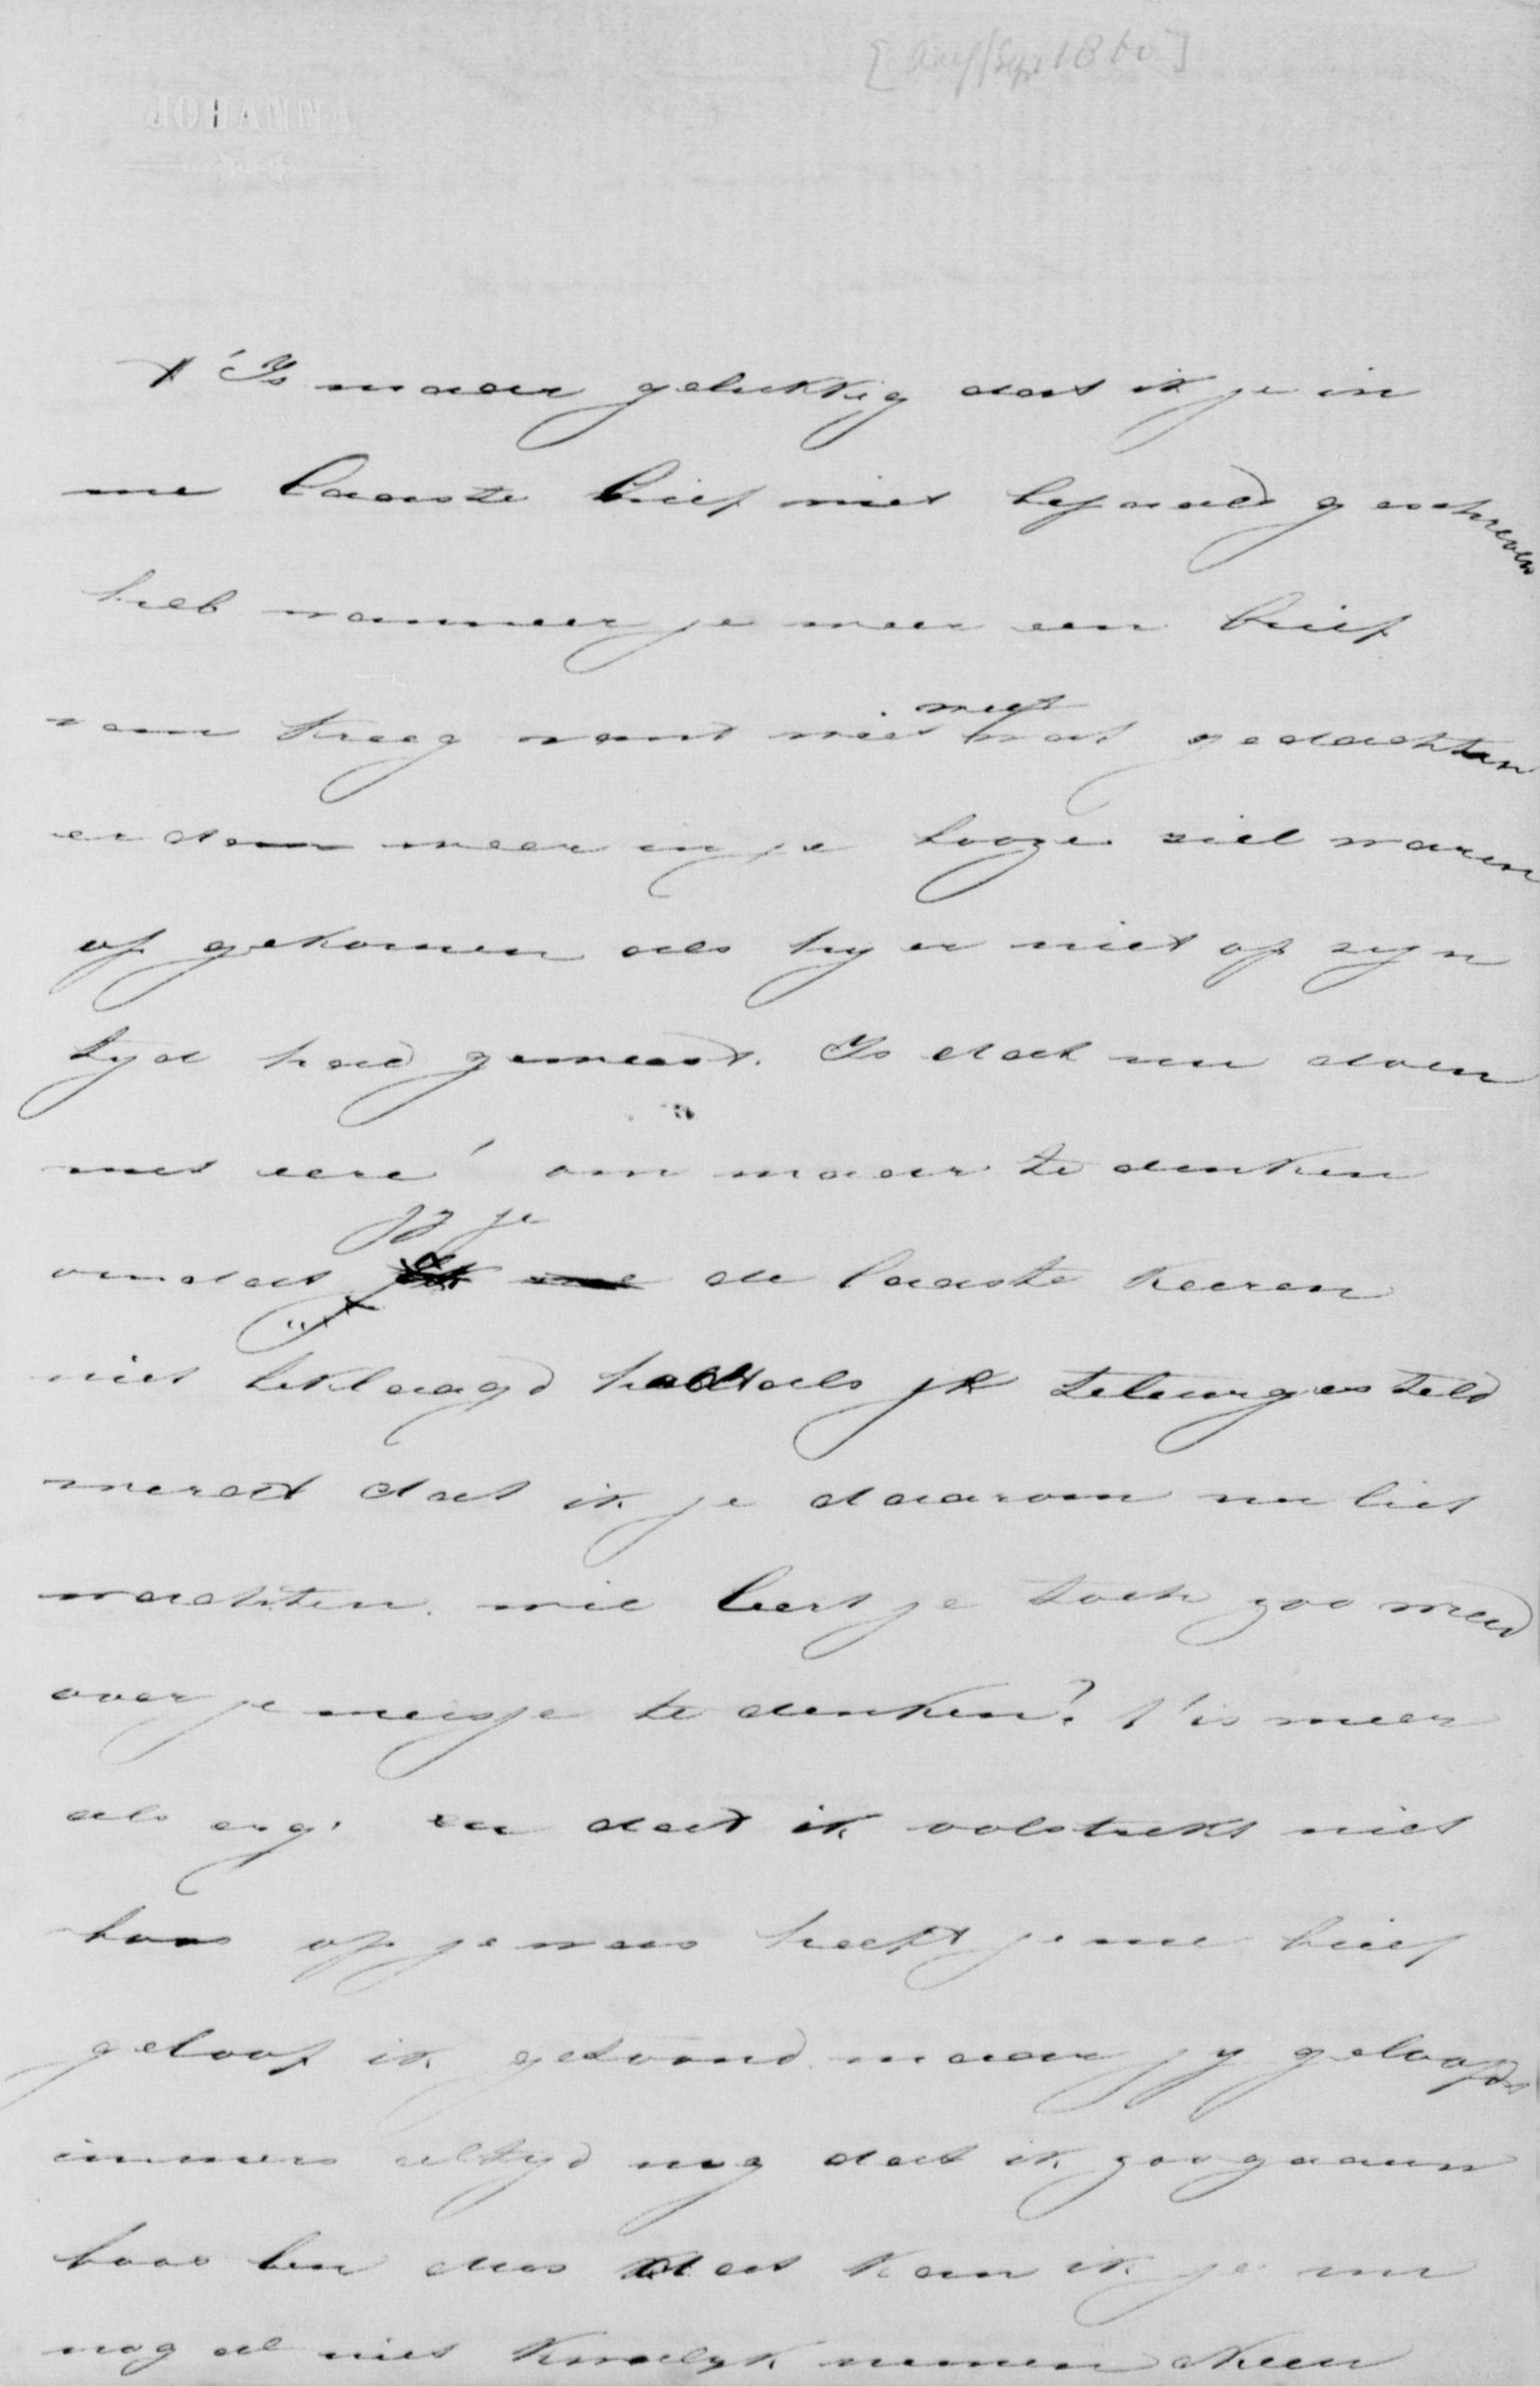 [Aug/Sept 18 60]
JOHANNA
't Is maar gelukkig dat ik je in
me laaste brief niet bepaald geschreven
heb wanneer je weer een brief
van kreeg want wie weet wat gedachten
er dan weer in je booze ziel waren
op gekomen als hy er niet op zyn
tyd had geweest. Is dat nu doen
met eere' om maar te denken
jy je
omdat de laaste keeren
niet beklaagd hadt als je teleurgesteld
werdt dat ik je daarom nu liet
wachten. wie leert je toch zoo wreed
over je meisje te denken? t' is meer
als erg. en dat ik volstrekt niet
boos op je was heeft je me brief
geloof ik getoond maar jy gelooft
immers altyd nog dat ik zoo gaarn
boos ben dus dat kan ik je nu
nog al niet kwalyk nemen